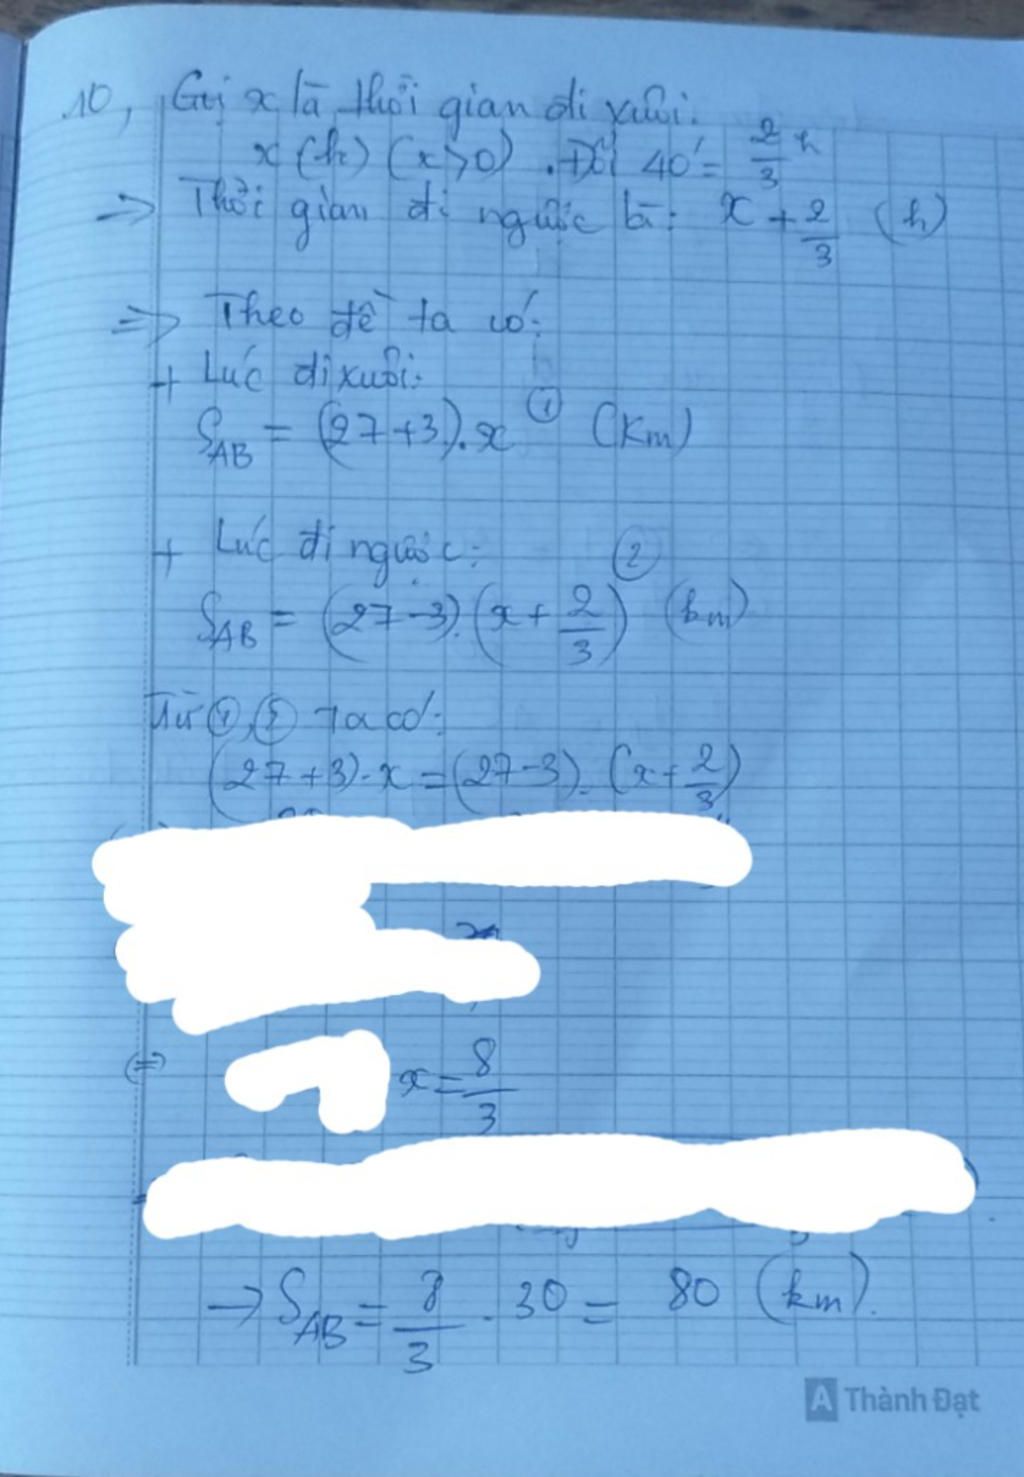 10, Gọi x là thời gian đi xuôi.
x (h) (x>0). Đổi 40' = 2/3 h
=> Thời gian đi ngược là: x + 2/3 (h)
=> Theo đề ta có:
+ Lúc đi xuôi:
S_AB = (27+3).x ① (Km)
+ Lúc đi ngược:
S_AB = (27-3).(x + 2/3) ② (km)
Từ ①, ② ta có:
(27+3).x = (27-3).(x + 2/3)
(=) x = 8/3
→ S_AB = 8/3 . 30 = 80 (km).
A Thành Đạt